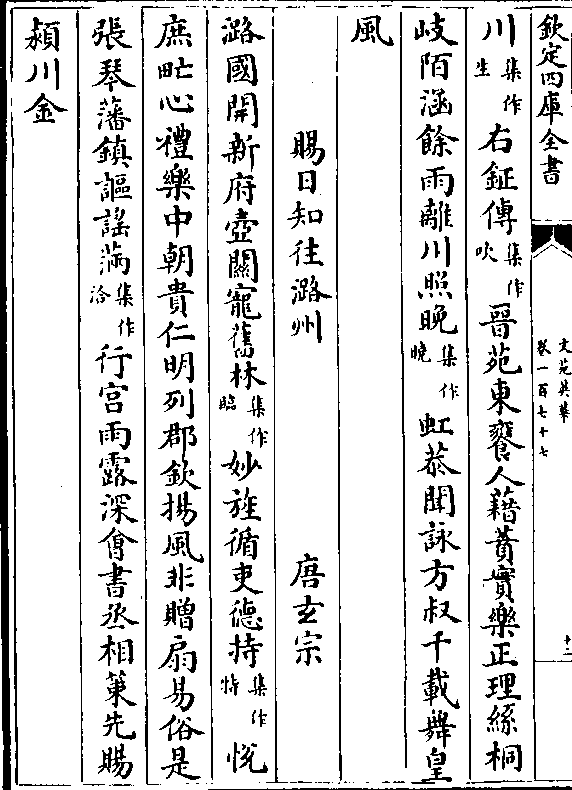 欽定四庫全書
文苑英華
卷一百七十七
十二
川集作生右鉦傳集作吹晉苑東饔人藉蕡實樂正理絲桐
岐陌涵餘雨離川照晚集作曉虹恭聞詠方叔千載舞皇
風
賜日知往潞州 唐玄宗
潞國開新府壺關寵舊林集作臨妙旌循吏德持集作特悅
庶甿心禮樂中朝貴仁明列郡欽揚風非贈扇易俗是
張琴藩鎮謳謠滿集作洽行宫雨露深會書丞相策先賜
潁川金